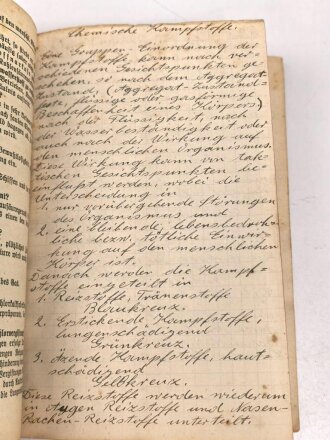 Chemische Kampfstoffe.
Eine Gruppen-Einordnung der
Kampfstoffe kann nach ver-
schiedenen Gesichtspunkten ge-
schehen, so nach dem Aggregat-
zustand, (Aggregat-Zustand =
feste, flüssige oder gasförmige
Beschaffenheit eines Körpers)
nach der Flüssigkeit, nach
der Wasserbeständigkeit oder
auch nach der Wirkung auf
den menschlichen Organismus.
Diese Wirkung kann von tak-
tischen Gesichtspunkten be-
einflußt werden, wobei die
Unterscheidung in
1. nur vorübergehende Störungen
des Organismus und
2. eine bleibende, lebensbedroh-
liche bezw. tötliche Einwir-
kung auf den menschlichen
Körper ist.
Danach werden die Kampf-
stoffe eingeteilt in
1. Reizstoffe, Tränenstoffe
Blaukreuz.
2. Erstickende Kampfstoffe,
lungenschädigend
Grünkreuz.
3. Ätzende Kampfstoffe, haut-
schädigend
Gelbkreuz.
Diese Reizstoffe werden wiederum
in Augen Reizstoffe und Nasen-
Rachen-Reizstoffe unterteilt.